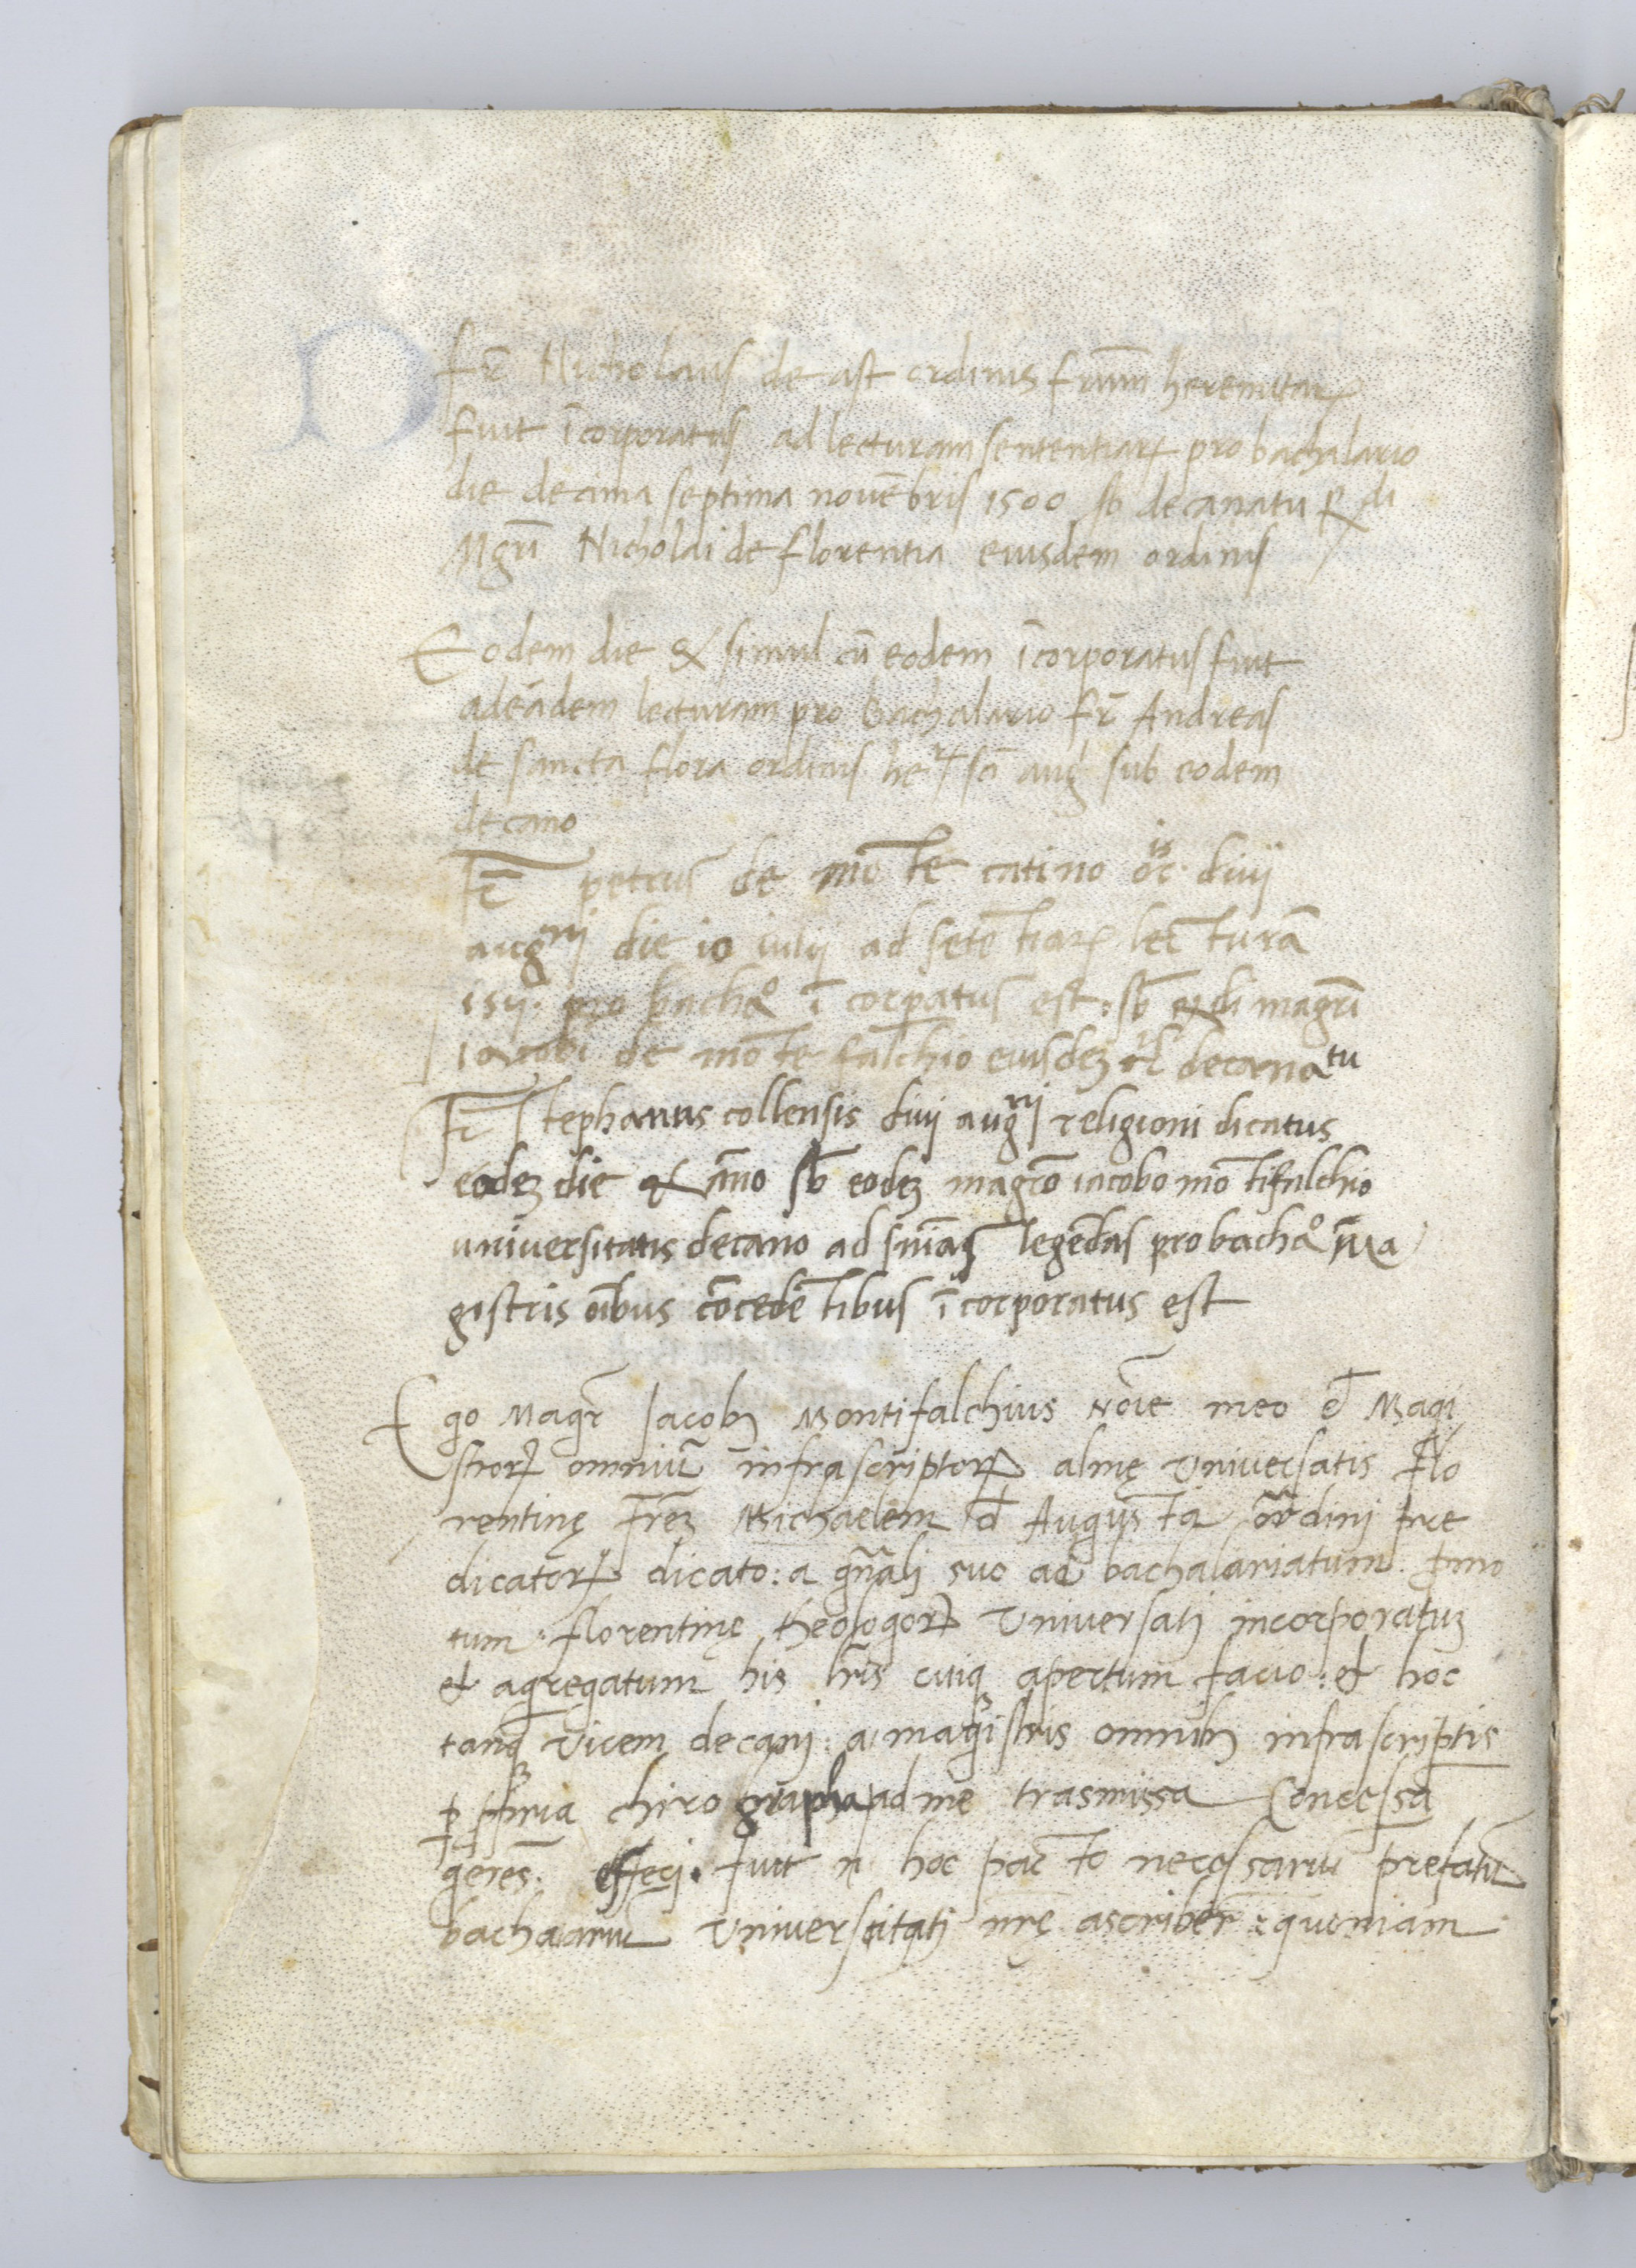 fr̃ Nicholaus de ast ordinis fr̃um heremitaꝝ
fuit ĩcorporatus ad lecturam sententiaꝝ pro bachalario
die decima septima nouẽbris 1500 sb decanatu R di
Mgr̃i Nicholai de florentia eiusdem ordinis
Eodem die & simul cũ eodem ĩcorporatus fuit
ad eãdem lecturam pro bachalario fr̃ Andreas
de sancta flora ordinis he sc̃i aug̃ sub eodem
decano
Fr̃ petrus de mõte catino or̃is diuij
augnj die 10 iulij ad setẽtiaꝝ lec̃turã
pro bachaº ĩcorpatus est : sb̃ magr̃i
iacobi de mõte falchio eiusdeʒ decanatu
Fr̃ Stephanus collensis diuij augnj religioni dicatus
eodeʒ die & ãno sb̃ eodeʒ magr̃o iacobo mõtifalchio
uniuersitatis decano ad legẽdas pro bachaº ma
gistris oĩbus cõcedẽtibus ĩcorporatus est
Ego Magr̃ Jacobꝰ Montifalchius Noĩe meo & Magi
stroꝝ omniũ infrascriptoꝝ almę Vniuersatis Flo
rentinę Fr̃eʒ Michaelem d̃ Augusta ordini pre
dicatoꝝ dicato : a gñali suo ad bachalariatum . ꝓmo
tum . florentinę theologoꝝ Vniuersatj incorporatuʒ
et agregatum his lr̃is cuiqꝫ apertum facio : et hoc
tanqꝫ Vicem decanj : a magistris omnibꝰ infrascriptis
ꝑ chirographa ad me trasmissa Concessã
gerẽs . effecj . fuit n̄ hoc pac̃to necessariũ prefatũ
bachalariũ Vniuersitatj nr̃ę ascriber̃ : quoniam